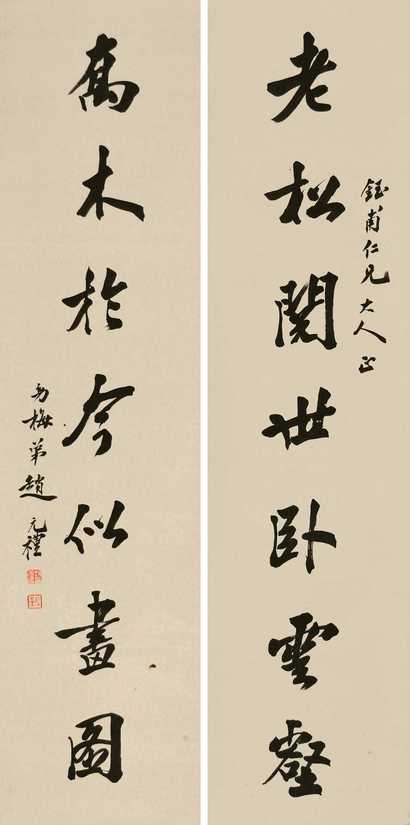 老松閱世臥雲壑
鈺甫仁兄大人正
萬木於今似畫圖
幼梅弟趙元禮